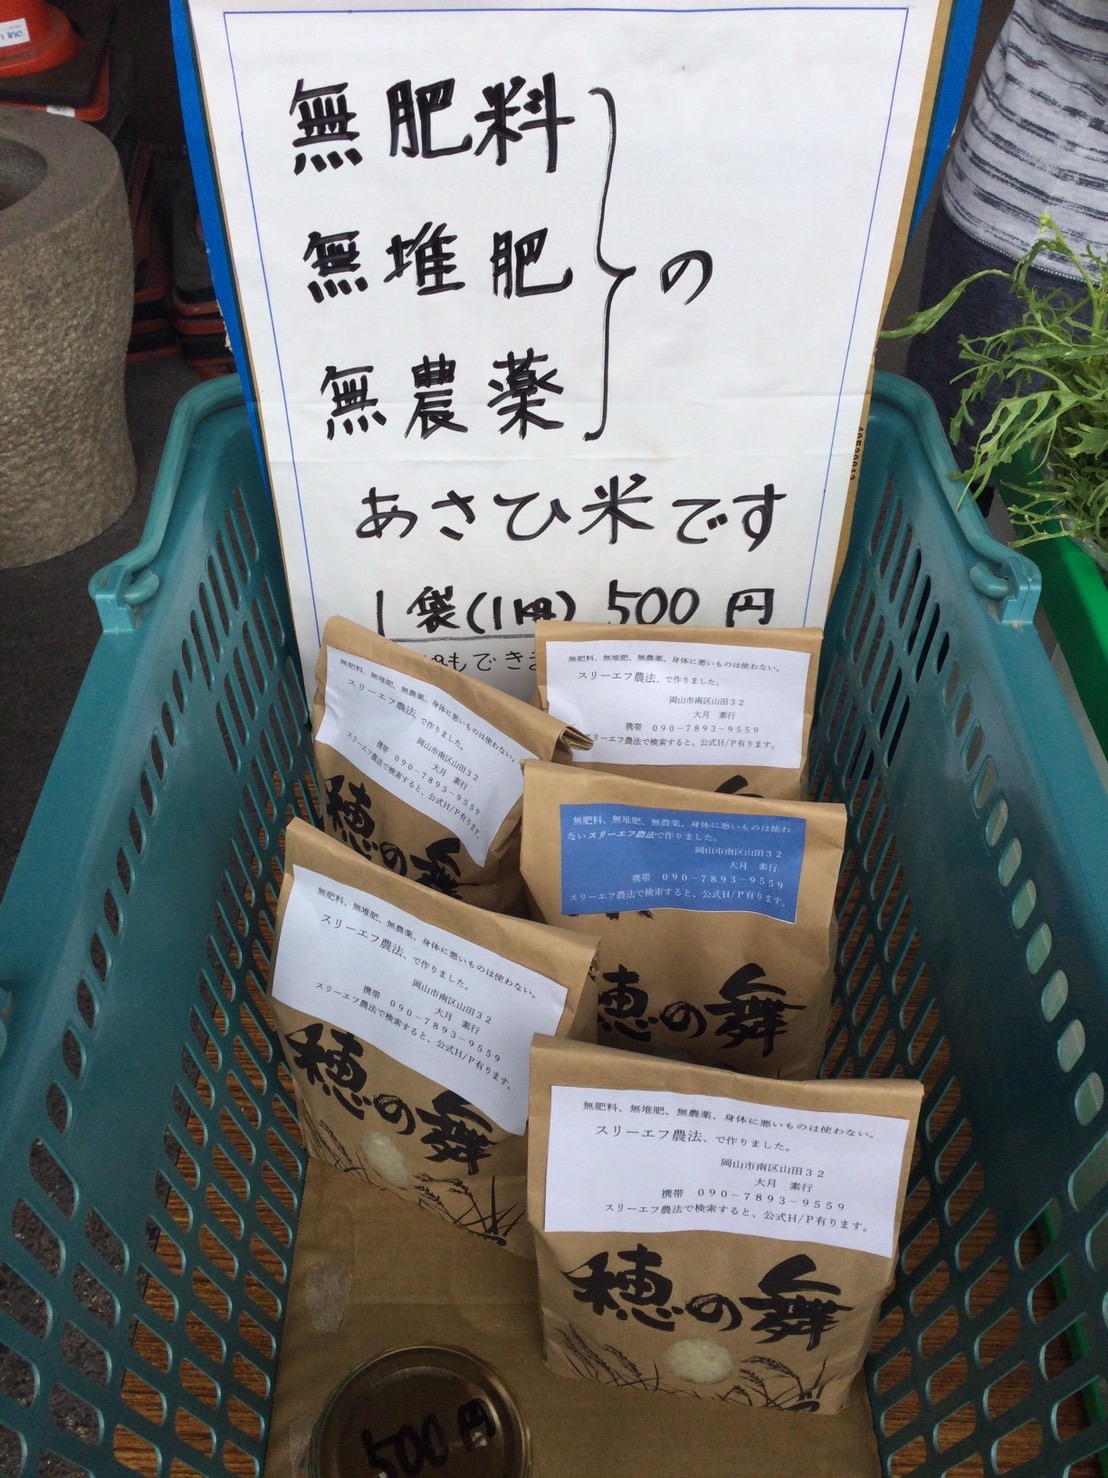 無肥料
無堆肥
無農薬
の
あさひ米です
1袋(1kg) 500円
もでき
無肥料、無堆肥、無農薬、身体に悪いものは使わない。
スリーエフ農法、で作りました。
岡山市南区山田32
大月 素行
携帯 090-7893-9559
スリーエフ農法で検索すると、公式H/P有ります。
穂の舞
無肥料、無堆肥、無農薬、身体に悪いものは使わない。
スリーエフ農法、で作りました。
岡山市南区山田32
大月 素行
携帯 090-7893-9559
スリーエフ農法で検索すると、公式H/P有ります。
無肥料、無堆肥、無農薬、身体に悪いものは使わ
ないスリーエフ農法で作りました。
岡山市南区山田32
大月 素行
携帯 090-7893-9559
スリーエフ農法で検索すると、公式H/P有ります。
穂の舞
無肥料、無堆肥、無農薬、身体に悪いものは使わない。
スリーエフ農法、で作りました。
岡山市南区山田32
大月 素行
携帯 090-7893-9559
スリーエフ農法で検索すると、公式H/P有ります。
穂の舞
無肥料、無堆肥、無農薬、身体に悪いものは使わない。
スリーエフ農法、で作りました。
岡山市南区山田32
大月 素行
携帯 090-7893-9559
スリーエフ農法で検索すると、公式H/P有ります。
穂の舞
500円